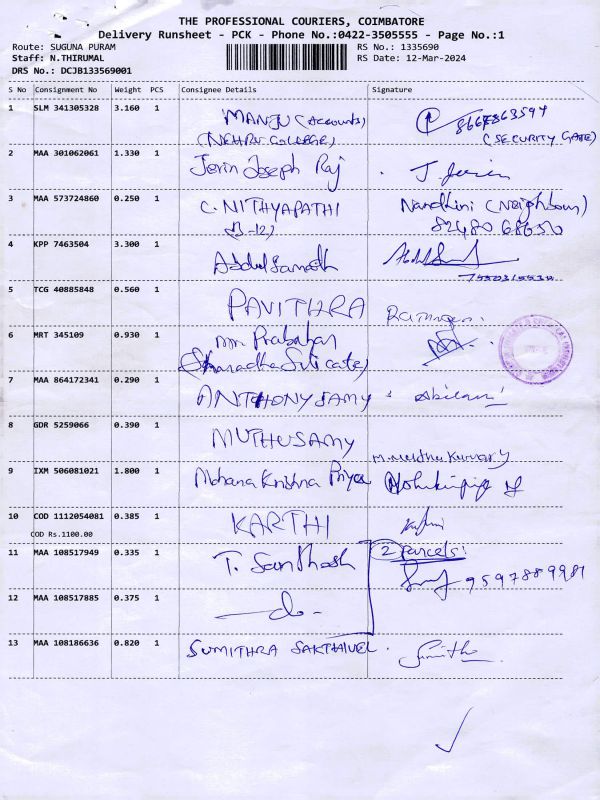 THE PROFESSIONAL COURIERS, COIMBATORE
Delivery Runsheet - PCK - Phone No.:0422-3505555 - Page No.:1
Route: SUGUNA PURAM RS No.: 1335690
Staff: N.THIRUMAL RS Date: 12-Mar-2024
DRS No.: DCJB133569001
S No Consignment No Weight PCS Consignee Details Signature
1 SLM 341305328 3.160 1 MANJU (Accounts)
(NEHRU COLLEGE) (SECURITY GATE)
2 MAA 301062061 1.330 1 Jerin Joseph Raj J. Jerin
3 MAA 573724860 0.250 1 C. NITHYAPATHI Nandhini (Neighbour)
82480 68650
4 KPP 7463504 3.300 1 Abdul Samath
5 TCG 40885848 0.560 1 PAVITHRA
6 MRT 345109 0.930 1 Prabahar
7 MAA 864172341 0.290 1 ANTHONYSAMY
8 GDR 5259066 0.390 1 MUTHUSAMY
9 IXM 506081021 1.800 1 Mohana Krishna Priya
10 COD 1112054081 0.385 1 KARTHI
COD Rs.1100.00
11 MAA 108517949 0.335 1 T. Santhosh 2 Parcels
9597889981
12 MAA 108517885 0.375 1 -do-
13 MAA 108186636 0.820 1 SUMITHRA SAKTHIVEL. Sumithra